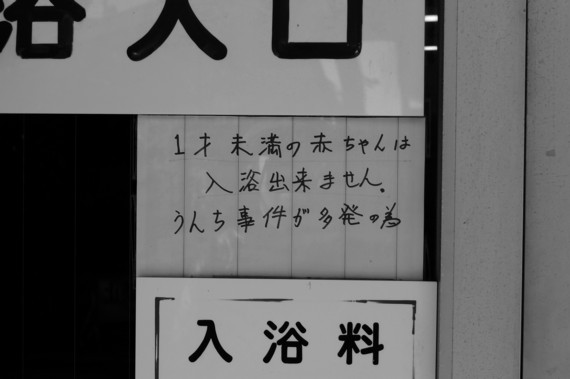 浴入口
1才未満の赤ちゃんは
入浴出来ません。
うんち事件が多発の為
入浴料